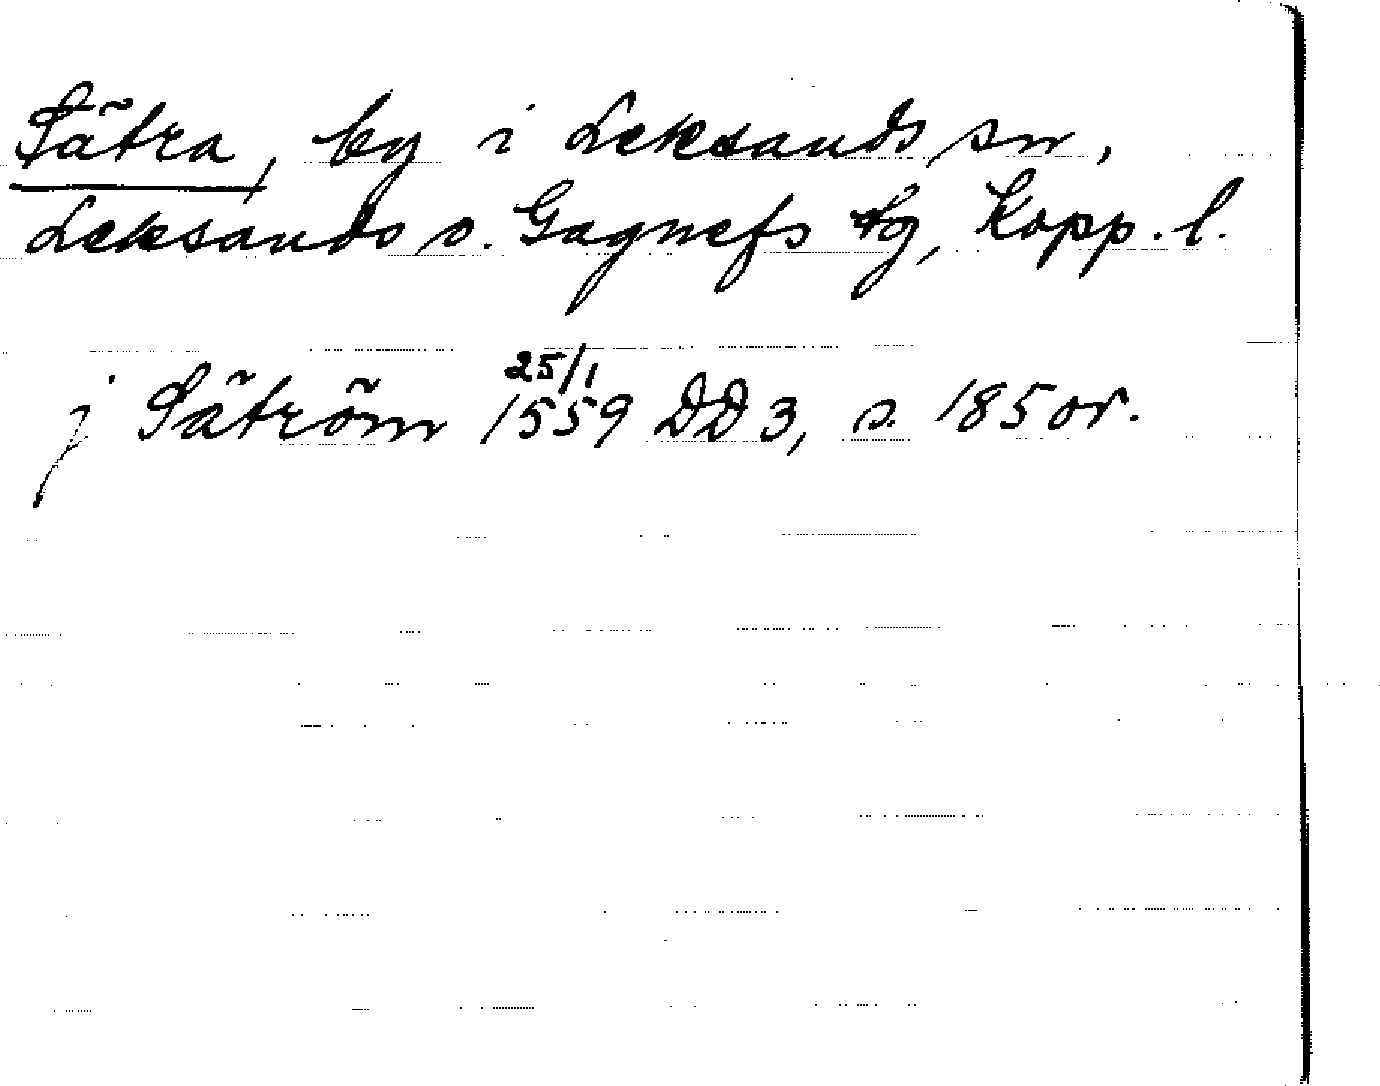 Sätra, by i Leksands sn,
Leksands o. Gagnefs tg, Kopp. l.
j Säteröm 25/1 1559 DD 3, s. 185 or.